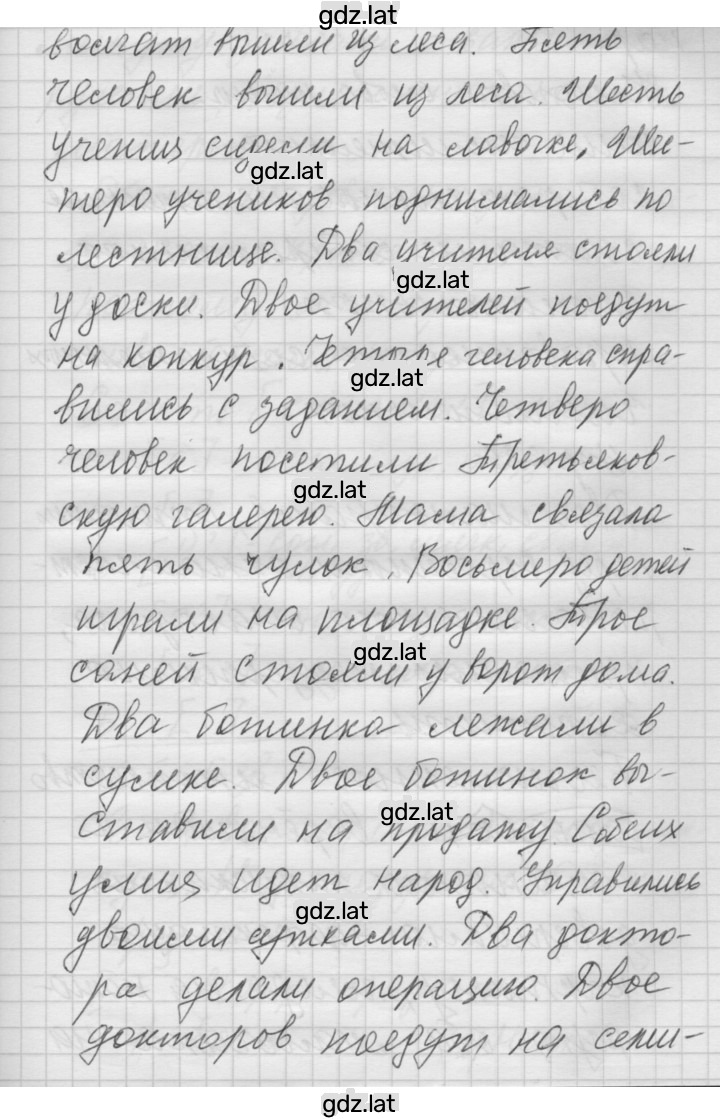 gdz.lat
волчат вышли из леса. Пять
человек вышли из леса. Шесть
учениц сидели на лавочке. Ше-
gdz.lat
стеро учеников поднимались по
лестнице. Два учителя стояли
gdz.lat
у доски. Двое учителей поедут
на конкур. Четыре человека спра-
gdz.lat
вились с заданием. Четверо
человек посетили Третьяков-
gdz.lat
скую галерею. Мама связала
пять чулок. Восьмеро детей
играли на площадке. Трое
gdz.lat
саней стояли у ворот дома.
Два ботинка лежали в
сумке. Двое ботинок вы-
gdz.lat
ставили на продажу. С обеих
улиц идет народ. Управились
gdz.lat
двоими сутками. Два докто-
ра делали операцию. Двое
докторов поедут на семи-
gdz.lat